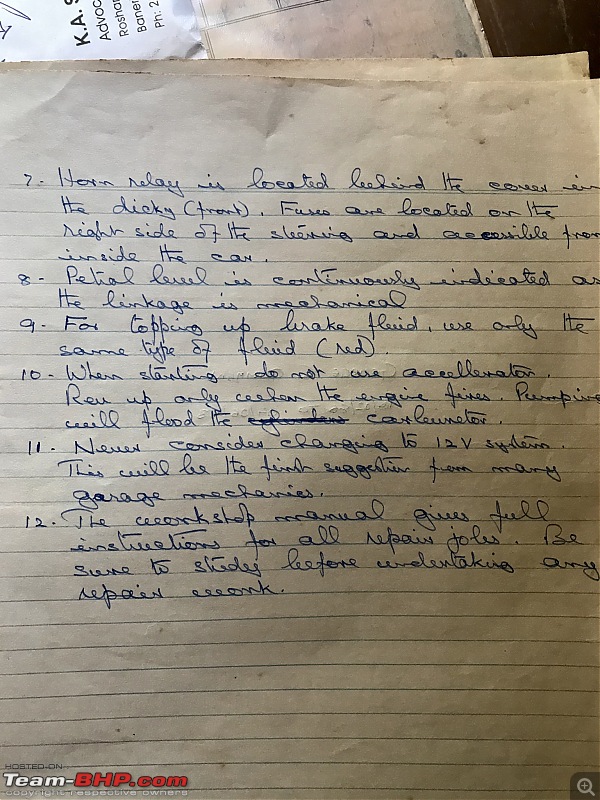 K.A. S
Advoc
Rosha
Baner
Ph: 2
7- Horn relay is located behind the cover in
the dicky (front). Fuses are located on the
right side of the steering and accessible from
inside the car.
8- Petrol level is continuously indicated as
the linkage is mechanical
9- For topping up brake fluid, use only the
same type of fluid (red).
10- When starting do not use accellerator.
Rev up only when the engine fires. Pumping
will flood the cylinders carburetor.
11- Never consider changing to 12V system.
This will be the first suggestion from many
garage mechanics.
12. The workshop manual gives full
instructions for all repair jobs. Be
sure to study before undertaking any
repair work.
HOSTED ON
Team-BHP.com
copyright respective owners